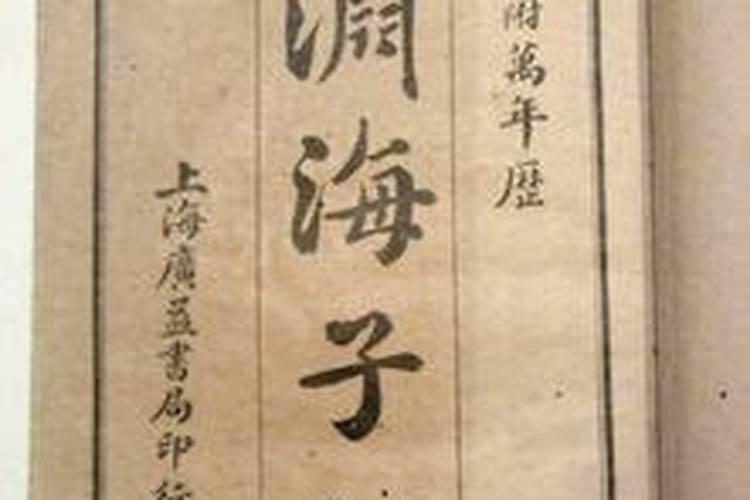 附萬年歷
淵海子
上海廣益書局印行